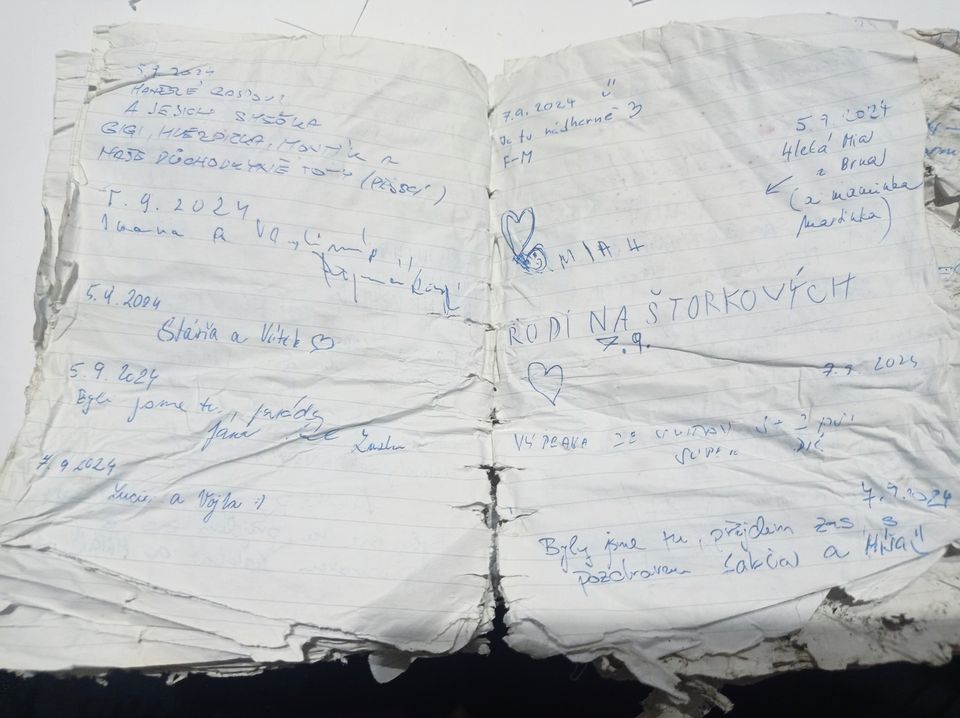 5.9.2024
MANŽELÉ
A JEJICH SMEČKA
GIGI, HVĚZDIČKA, MONTÍK A
NAŠE DŮCHODKYNĚ TOTY (PEJSCI)
5.9.2024
Ivana a
5.9.2024
Stáňa a Vítek
5.9.2024
Byli jsme tu, parády
Jana
7.9.2024
Lucie a Vojta :)
7.9.2024
Je tu nádherně
F-M
5.9.2024
4letá Mia
z Brna
(a maminka
Martinka)
MIA 4
RODINA ŠTORKOVÝCH
7.9.
7.9.2024
VÝPRAVA ZE
7.9.2024
Byly jsme tu, přijdem zas, s
pozdravem a Míša